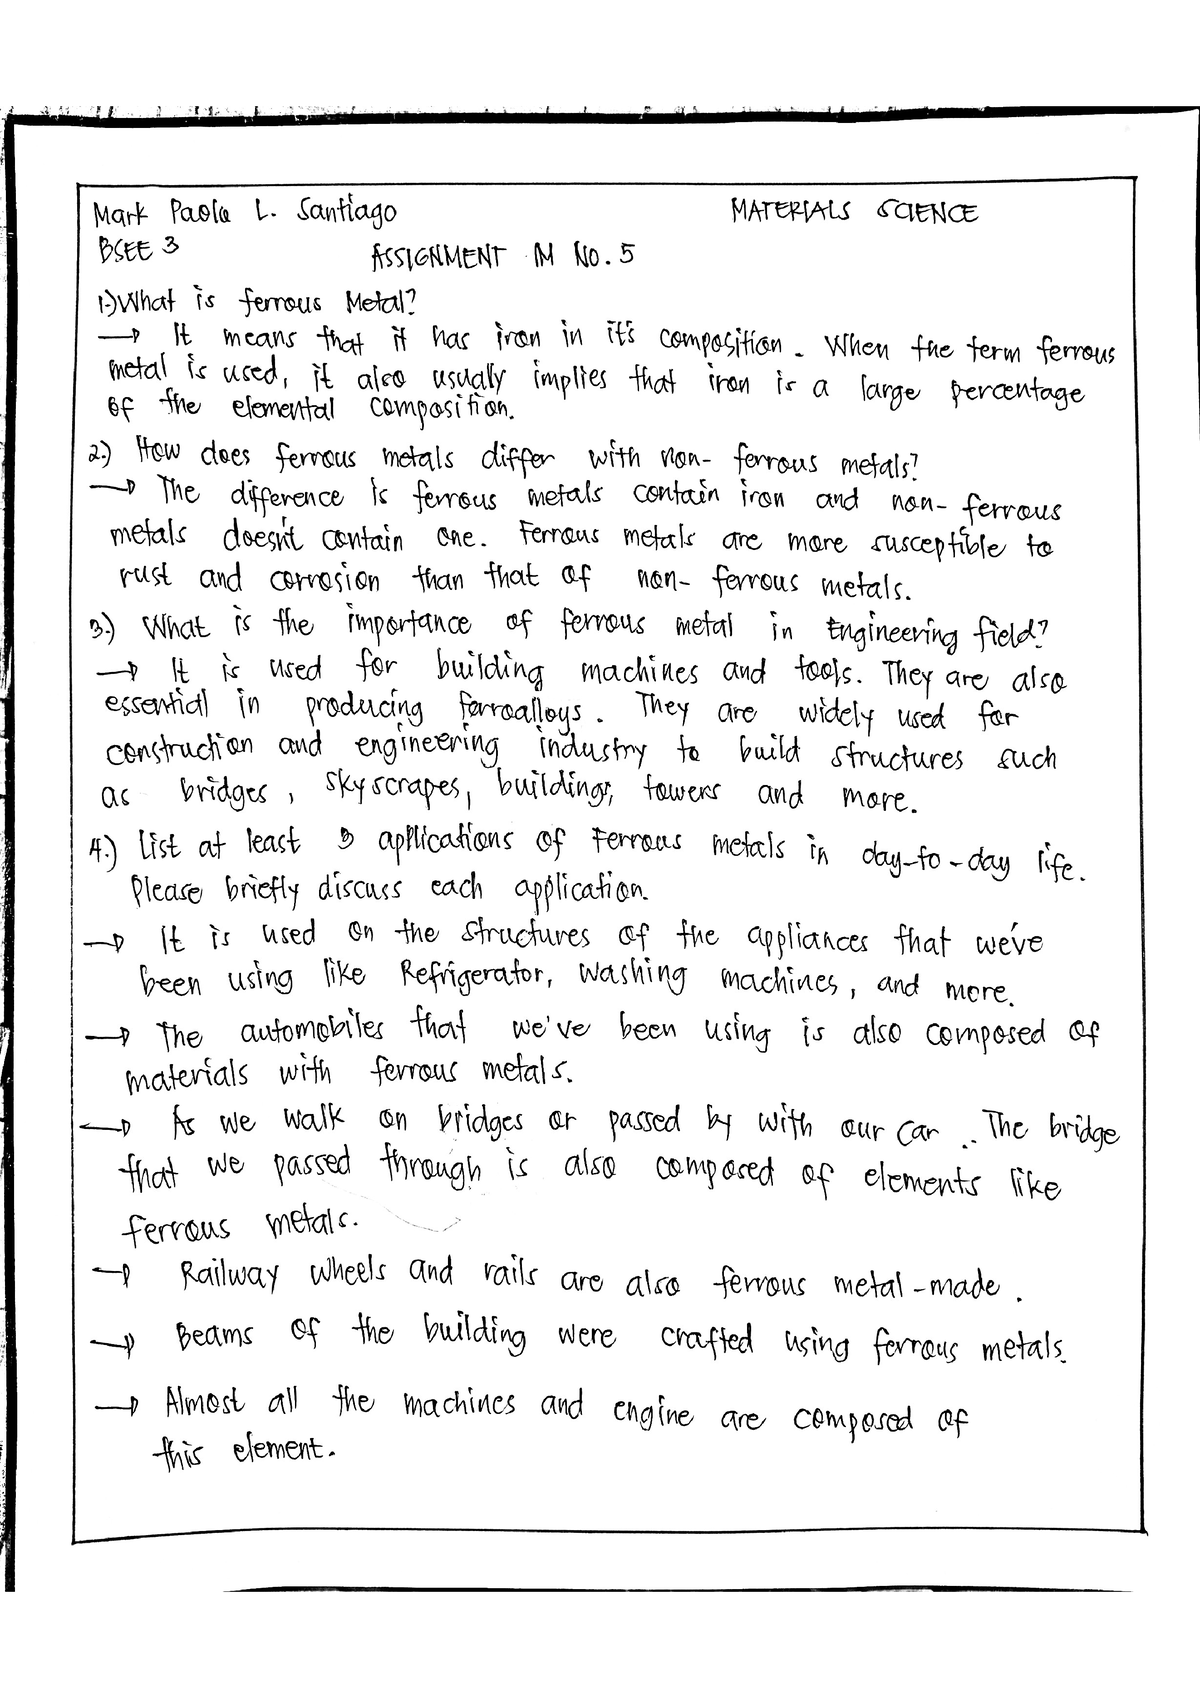 Mark Paolo L. Santiago MATERIALS SCIENCE
BSEE 3 ASSIGNMENT IM NO. 5
1.) What is ferrous Metal?
→ It means that it has iron in it's composition. When the term ferrous
metal is used, it also usually implies that iron is a large percentage
of the elemental composition.
2.) How does ferrous metals differ with non- ferrous metals?
→ The difference is ferrous metals contain iron and non- ferrous
metals doesn't contain one. Ferrous metals are more susceptible to
rust and corrosion than that of non- ferrous metals.
3.) What is the importance of ferrous metal in Engineering field?
→ It is used for building machines and tools. They are also
essential in producing ferroalloys. They are widely used for
construction and engineering industry to build structures such
as bridges, skyscrapes, buildings, towers and more.
4.) List at least 5 applications of Ferrous metals in day-to-day life.
Please briefly discuss each application.
→ It is used on the structures of the appliances that we've
been using like Refrigerator, washing machines, and more.
→ The automobiles that we've been using is also composed of
materials with ferrous metals.
→ As we walk on bridges or passed by with our car .. The bridge
that we passed through is also composed of elements like
ferrous metals.
→ Railway wheels and rails are also ferrous metal-made.
→ Beams of the building were crafted using ferrous metals.
→ Almost all the machines and engine are composed of
this element.